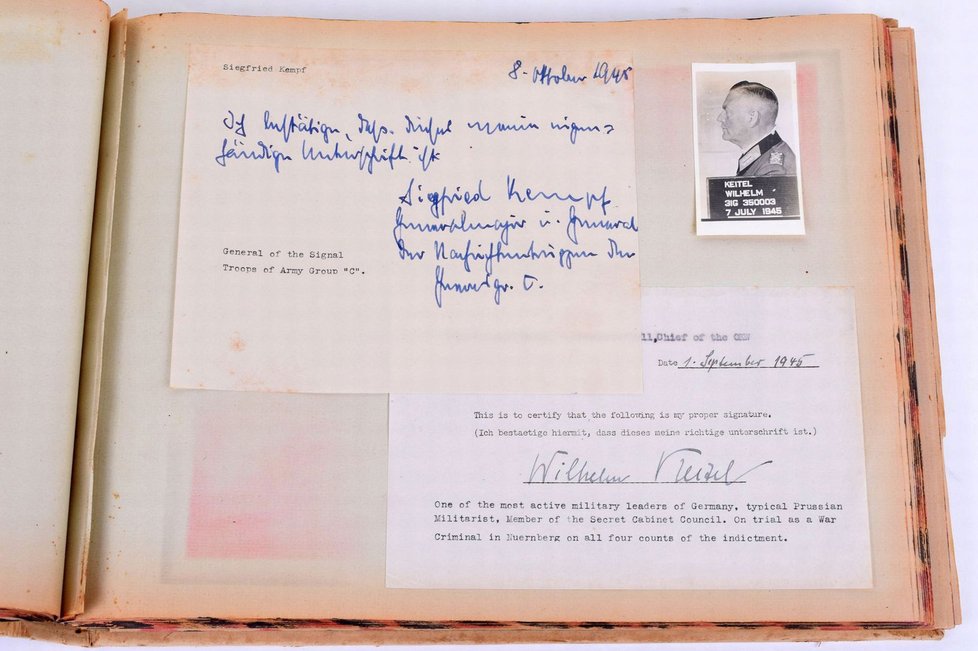 Siegfried Kempf
8. Oktober 1945
Ich bestätige, dass dieses meine eigen=
händige Unterschrift ist
Siegfried Kempf
Generalmajor u. General
der Nachrichtentruppen der
Heeresgr. C.
General of the Signal
Troops of Army Group "C".
KEITEL
WILHELM
31G 350003
7 JULY 1945
ll,Chief of the OKW
Date 1. September 1945
This is to certify that the following is my proper signature.
(Ich bestaetige hiermit, dass dieses meine richtige unterschrift ist.)
Wilhelm Keitel
One of the most active military leaders of Germany, typical Prussian
Militarist, Member of the Secret Cabinet Council. On trial as a War
Criminal in Nuernberg on all four counts of the indictment.